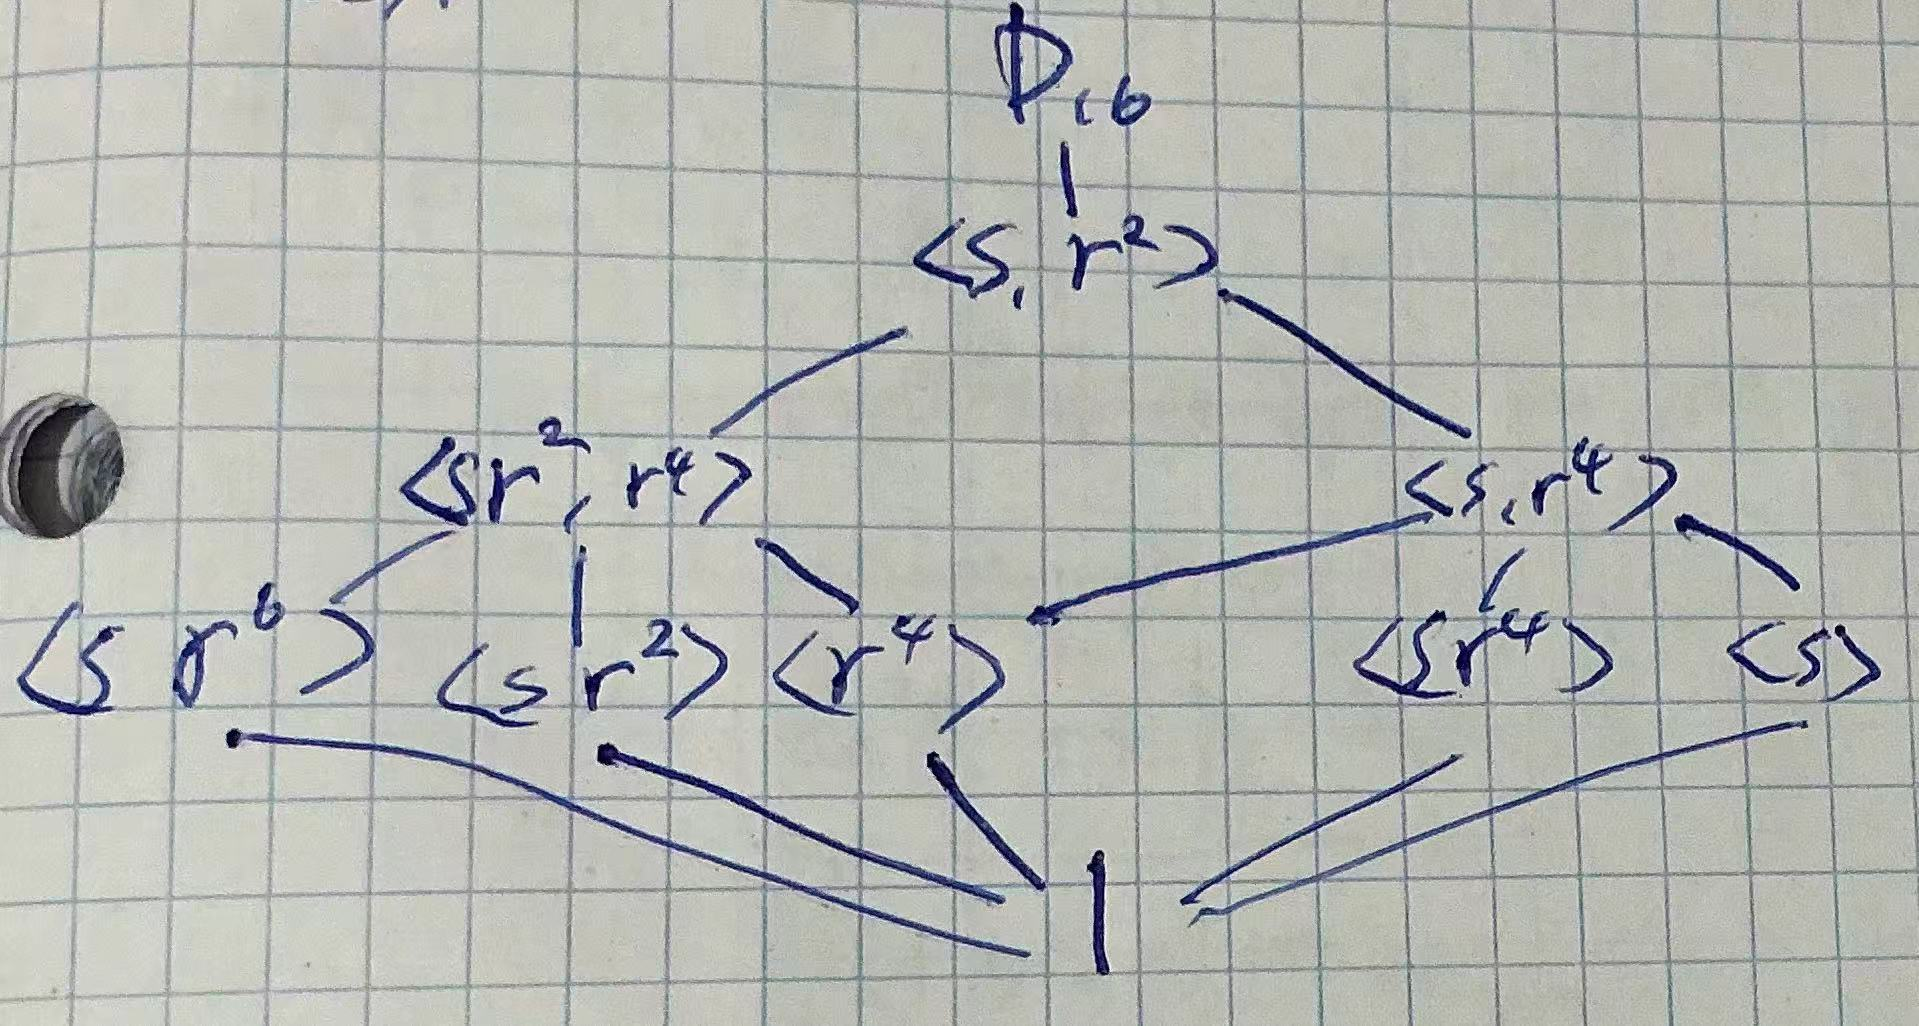 D₁₆
<s, r²>
<sr², r⁴> <s, r⁴>
<s r⁶> <s r²> <r⁴> <sr⁴> <s>
1